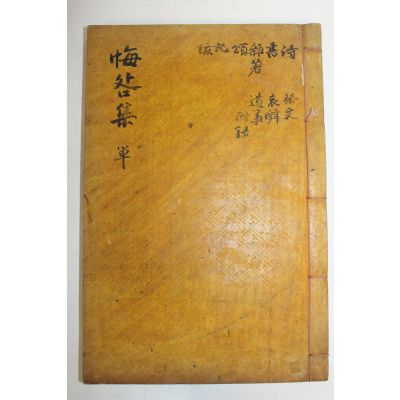 詩
書
雜著
頌
記
跋
祭文
哀辭
遺事
附錄
悔咎集 單